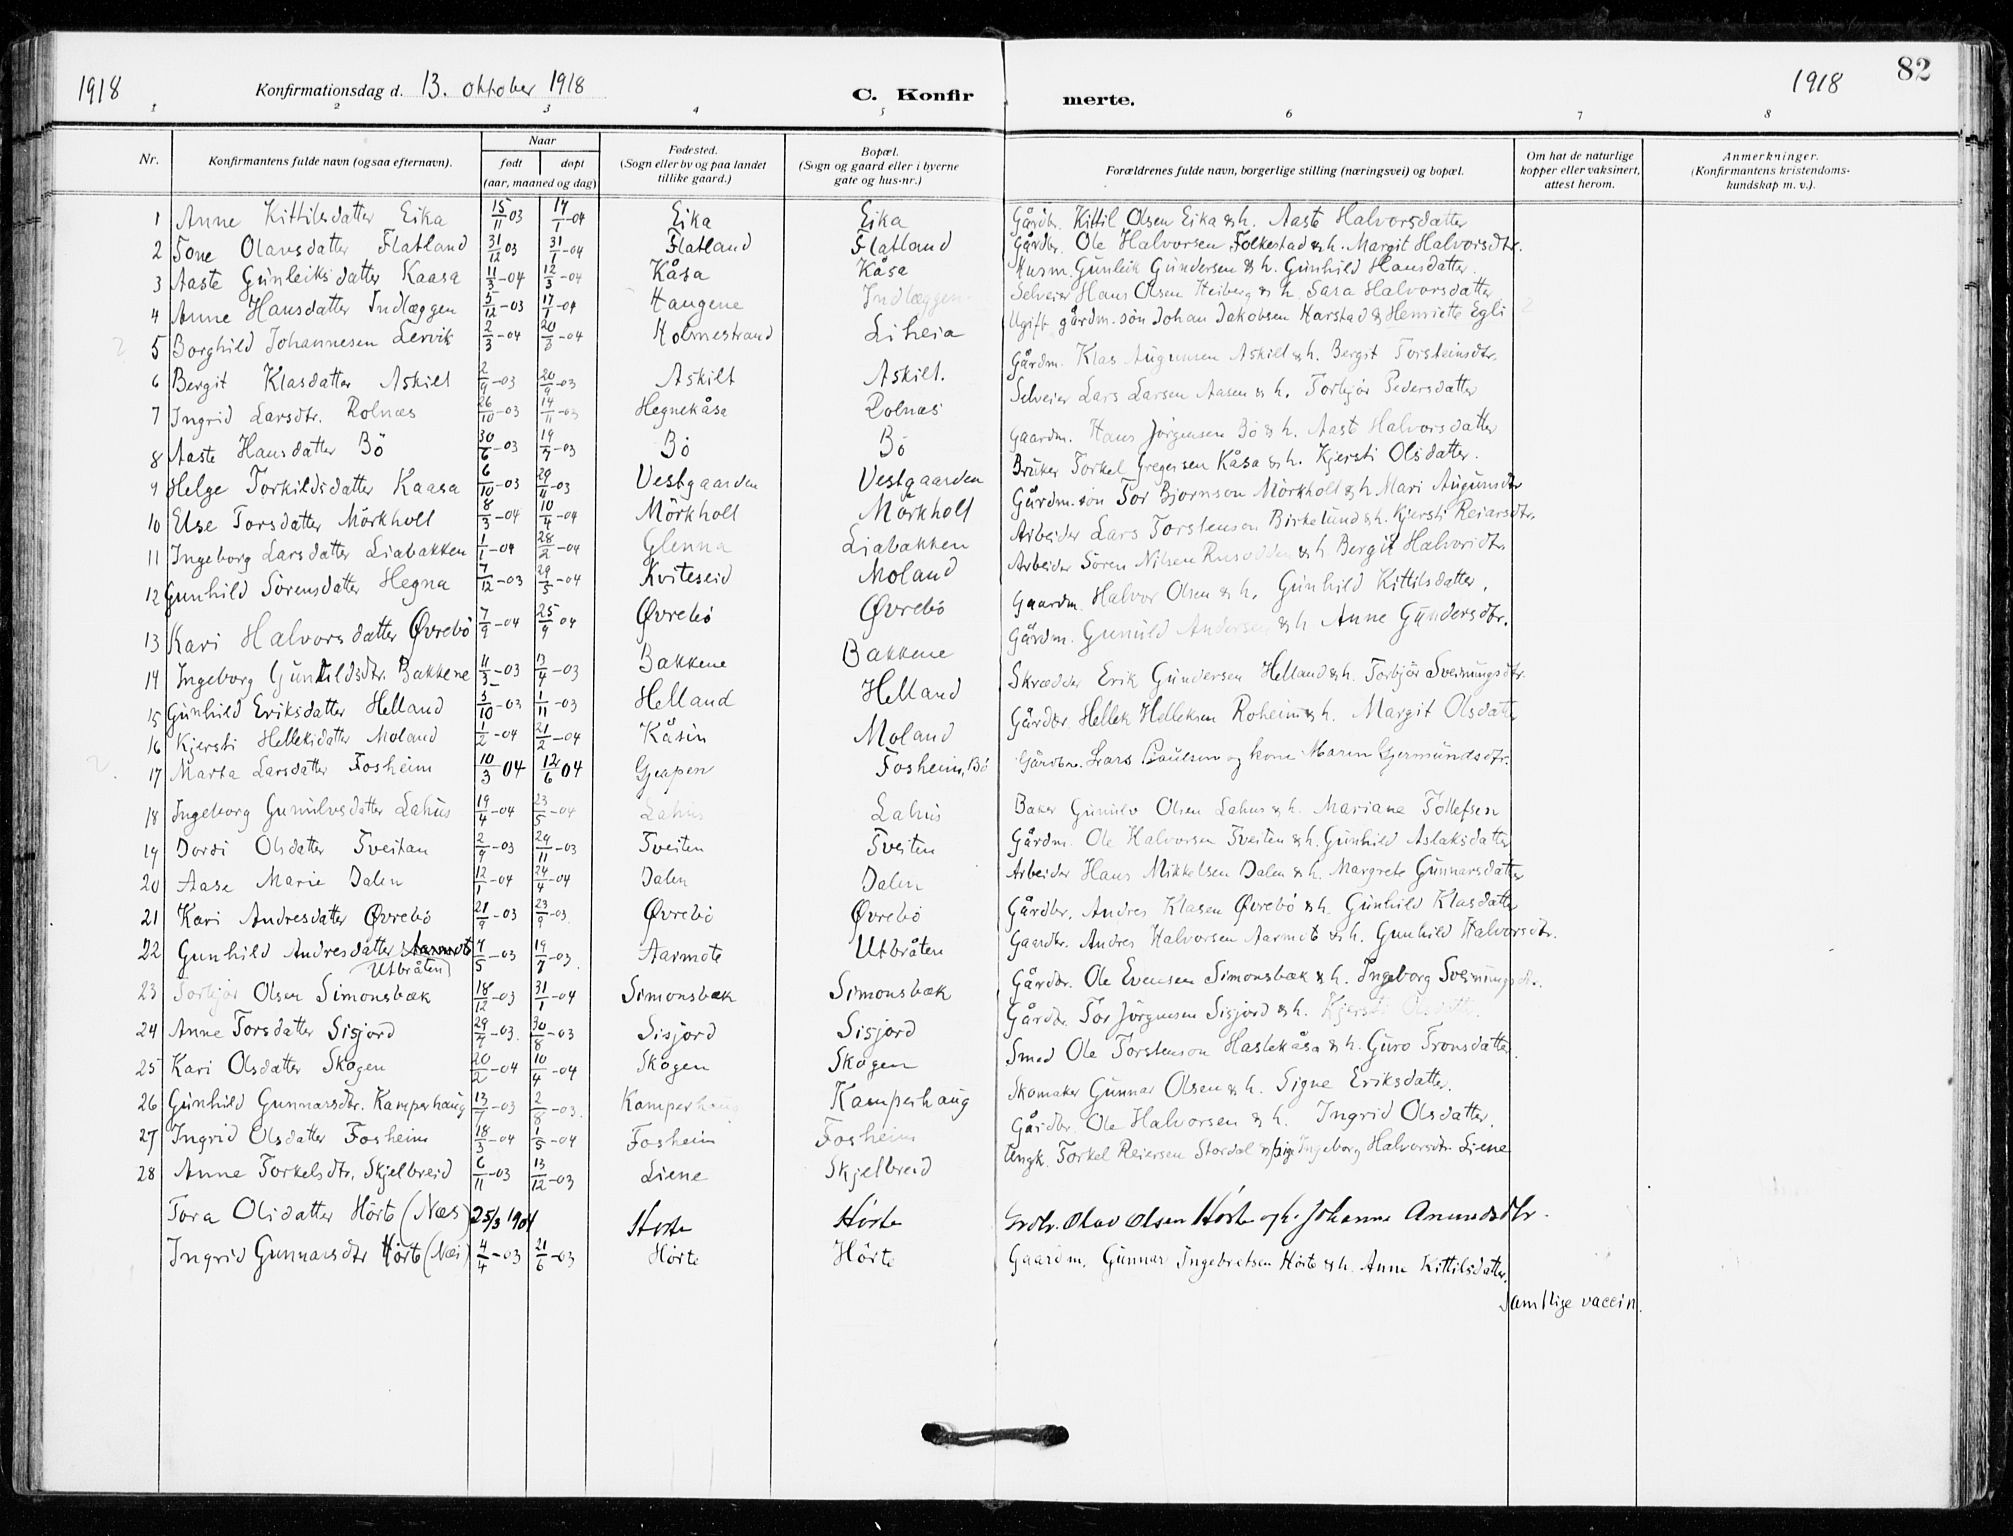 1918 Konfirmationsdag d. 13. oktober 1918 C. Konfirmerte. 1918 82
1 2 3 4 5 6 7 8
Nr. Konfirmantens fulde navn (ogsaa efternavn). Naar født døpt (aar, maaned og dag) Fødested. (Sogn eller by og paa landet tillike gaard.) Bopæl. (Sogn og gaard eller i byerne gate og hus-nr.) Forældrenes fulde navn, borgerlige stilling (næringsvei) og bopæl. Om hat de naturlige kopper eller vaksinert, attest herom. Anmerkninger. (Konfirmantens kristendomskundskap m. v.).
1 Anne Kittilsdatter Eika 15/11 03 17/1-04 Eika Eika Gårdbr. Kittil Olsen Eika & h. Aaste Halvorsdatter
2 Tone Olavsdatter Flatland 31/12 03 31/1-04 Flatland Flatland Gårdbr. Ole Halvorsen Folkestad & h. Margit Halvorsdtr.
3 Aaste Gunleiksdatter Kaasa 11/3-04 12/3-04 Kåsa Kåsa Husm. Gunleik Gundersen & h. Gunhild Hansdatter.
4 Anne Hansdatter Indlæggen 5/12-03 17/1-04 Haugene Indlæggen Selveier Hans Olsen Heiberg & h. Sara Halvorsdatter
5 Borghild Johannesen Lervik 2/3-04 20/8-04 Holmestrand Liheia Ugift gårdm. søn Johan Jakobsen Harstad & Henriette Egli
6 Bergit Klasdatter Askilt 2/9-03 20/9-03 Askilt Askilt. Gårdm. Klas Augunsen Askilt & h. Bergit Torsteinsdtr.
7 Ingrid Larsdtr. Rolnæs 26/10-03 14/11-03 Hegnekåsa Rolnæs Selveier Lars Larsen Aasen & h. Torbjør Pedersdatter
8 Aaste Hansdatter Bö 30/6-03 19/7-03 Bö Bö Gaardm. Hans Jörgensen Bö & h. Aaste Halvorsdatter
9 Helge Torkildsdatter Kaasa 6/10-03 29/11-03 Vestgaarden Vestgaarden Bruker Torkel Gregersen Kåsa & h. Kjersti Olsdatter.
10 Else Torsdatter Mörkholt 8/3-04 10/4-04 Mörkholt Mörkholt Gårdm. søn Tor Bjornson Mörkholt & h. Mari Augunsdtr
11 Ingeborg Larsdatter Liabakken 1/1-04 28/2-04 Glenna Liabakken Arbeider Lars Torstenson Birkelund & h. Kjersti Reiarsdtr.
12 Gunhild Sörensdatter Hegna 7/12-03 29/5-04 Kviteseid Moland Arbeider Sören Nilsen & h. Bergit Halvorsdtr.
13 Kari Halvorsdatter Øvrebö 7/9-04 25/9 04 Øvrebö Øvrebö Gaardm. Halvor Olsen & h. Gunhild Kittilsdatter.
14 Ingeborg Gunuldsdtr. Bakkene 11/3-03 13/4-03 Bakkene Bakkene Gårdm. Gunuld Andersen & h. Anne Gundersdtr.
15 Gunhild Eriksdatter Helland 5/10-03 1/11-03 Helland Helland Skrædder Erik Gundersen Helland & h. Torbjör Sveinungsdtr.
16 Kjersti Helleksdatter Moland 1/2-04 21/2-04 Kåsin Moland Gårdbr. Hellek Helleksen Roheim & h. Margit Olsdatter
17 Marta Larsdatter Fosheim 10/3 04 12/6 04 Gjeapen Fosheim, Bö Gårdbr. Lars Paulsen og kone Maren Gjermundsdtr.
18 Ingeborg Gunulvsdatter Lahus 19/4-04 23/5-04 Lahus Lahus Baker Gunulv Olsen Lahus & h. Mariane Tollefsen
19 Dordi Olsdatter Tveitan 2/9-03 29/11-03 Tveiten Tveiten Gårdm. Ole Halvorsen Tveiten & h. Gunhild Aslaksdatter
20 Aase Marie Dalen 12/1-04 24/4-04 Dalen Dalen Arbeider Hans Mikkelsen Dalen & h. Margrete Gunnarsdatter
21 Kari Andresdatter Øvrebö 21/9-03 23/9-03 Øvrebö Øvrebö Gårdbr. Andres Klasen Øvrebö & h. Gunhild Klasdatter
22 Gunhild Andresdatter Aarmote Utbråten 7/5-03 19/7-03 Aarmote Utbråten Gaardbr. Andres Halvorsen Aarmote & h. Gunhild Halvorsdtr.
23 Torbjør Olsen Simonsbæk 18/12-03 31/1-04 Simonsbæk Simonsbæk Gårdbr. Ole Evensen Simonsbæk & h. Ingeborg Sveinungsdtr.
24 Anne Torsdatter Sisjord 29/7-03. 30/8-03 Sisjord Sisjord Gårdbr. Tor Jörgensen Sisjord & h. Kjersti Olsdatter.
25 Kari Olsdatter Skogen 20/2-04 10/4-04 Skogen Skogen Smed Ole Torstenson Haslekåsa & h. Guro Tronsdatter.
26 Gunhild Gunnarsdtr. Kamperhaug 13/7-03 2/8-03. Kamperhaug Kamperhaug Skomaker Gunnar Olsen & h. Signe Eriksdatter.
27 Ingrid Olsdatter Fosheim 18/3-04 1/5-04 Fosheim Fosheim Gårdbr. Ole Halvorsen & h. Ingrid Olsdatter.
28 Anne Torkelsdtr. Skjelbreid 6/11-03 13/12-03 Liene Skjelbreid Ungk. Torkel Reiersen Stordal & pige Ingeborg Halvorsdtr. Liene
Tora Olsdatter Hörte (Næs) 25/3 1904 Hörte Hörte Grdbr. Olav Olsen Hörte og h. Johanne Amundsdtr.
Ingrid Gunnarsdtr Hörte (Næs) 4/4-03 21/6-03 Hörte Hörte Gaardm. Gunnar Ingebretsen Hörte & h. Anne Kittilsdatter.
Samtlige vaccin.